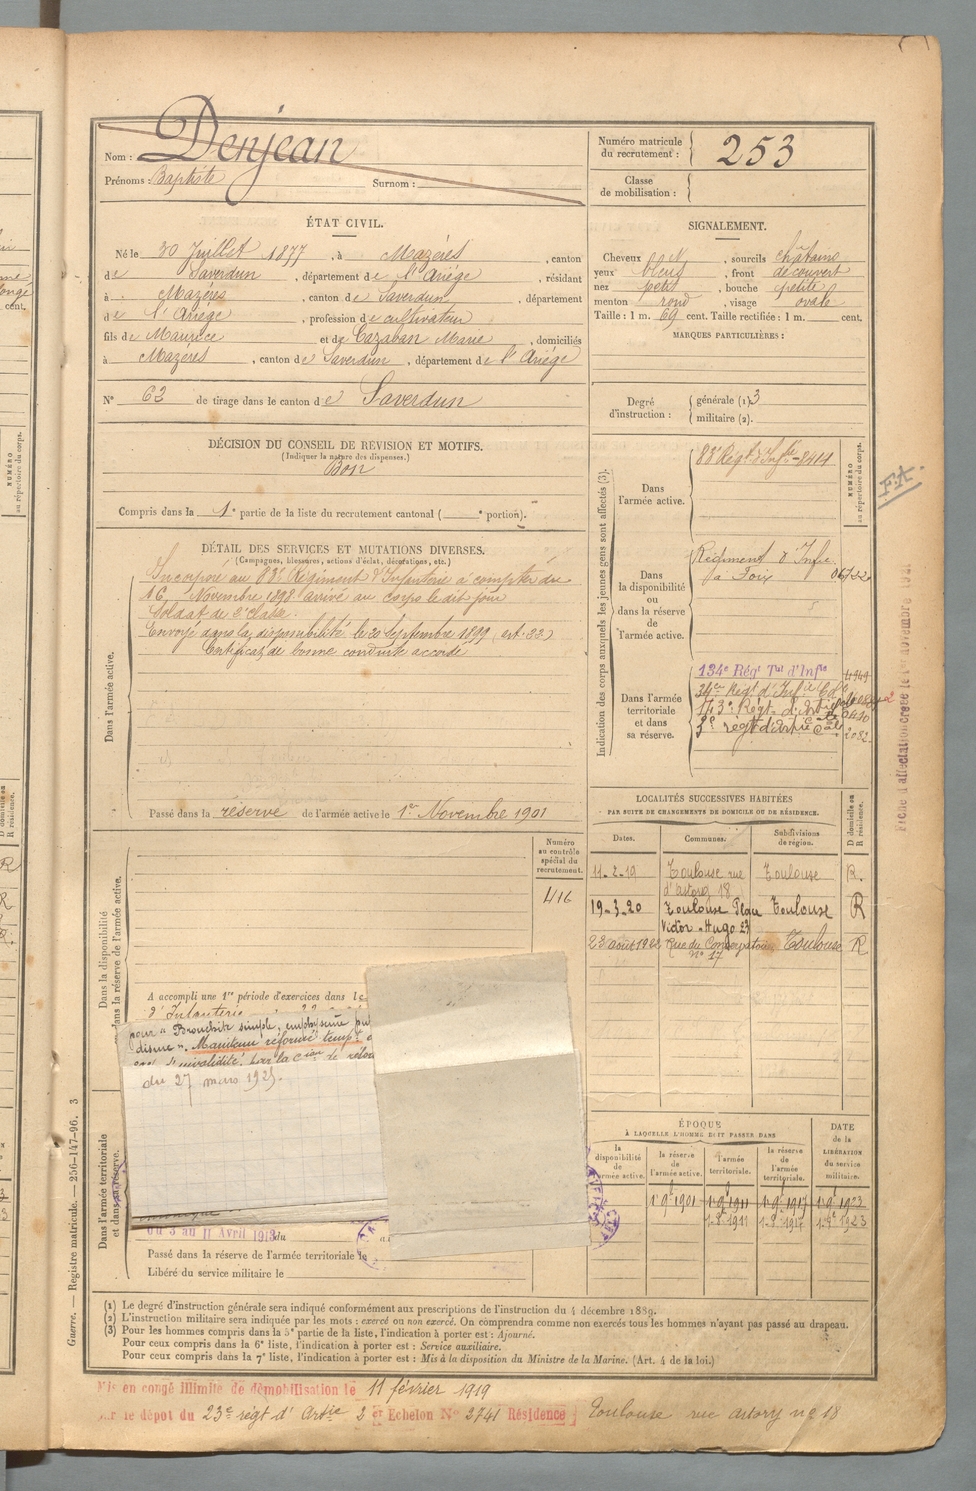 Nom : Denjean
Prénoms : Baptiste Surnom :
Numéro matricule du recrutement : 253
Classe de mobilisation :
ÉTAT CIVIL.
Né le 30 Juillet 1877, à Mazéres, canton
de Saverdun, département de l'Ariége, résidant
à Mazéres, canton de Saverdun, département
de l'Ariége, profession de cultivateur
fils de Maurice et de Cazaban Marie, domiciliés
à Mazeres, canton de Saverdun, département de l'Ariége
N° 62 de tirage dans le canton de Saverdun
SIGNALEMENT.
Cheveux N, sourcils châtains
yeux bleus, front découvert
nez petit, bouche petite
menton rond, visage ovale
Taille : 1 m. 69 cent. Taille rectifiée : 1 m. cent.
MARQUES PARTICULIÈRES :
Degré d'instruction : générale (1) 3
militaire (2).
DÉCISION DU CONSEIL DE REVISION ET MOTIFS.
(Indiquer la nature des dispenses.)
Bon
Compris dans la 1e partie de la liste du recrutement cantonal ( e portion).
DÉTAIL DES SERVICES ET MUTATIONS DIVERSES.
(Campagnes, blessures, actions d'éclat, décorations, etc.)
Dans l'armée active.
Incorporé au 83e Régiment d'Infanterie à compter du
16 Novembre 1898 arrivé au corps le dit jour
Soldat de 2e classe.
Envoyé dans la disponibilité le 20 Septembre 1899
Certificat de bonne conduite accordé
Passé dans la réserve de l'armée active le 1er Novembre 1901
Indication des corps auxquels les jeunes gens sont affectés (3).
NUMÉRO au répertoire du corps.
Dans l'armée active.
83e Régt d'Infie - 8414
Dans la disponibilité ou dans la réserve de l'armée active.
Régiment d'Infie
à Foix
Dans l'armée territoriale et dans sa réserve.
134e Régt Tal d'Infie
34e Régt d'Infie Cole
3e régt d'artie Cale 2082
F.A.
LOCALITÉS SUCCESSIVES HABITÉES
PAR SUITE DE CHANGEMENTS DE DOMICILE OU DE RÉSIDENCE.
Dates. Communes. Subdivisions de région. D domicile ou R résidence.
11-2-19 Toulouse rue Toulouse R.
d'astorg 18
19-3-20 Toulouse Place Toulouse R
Victor-Hugo 23
Rue du Conservatoire Toulouse R
n° 17
Dans la disponibilité ou dans la réserve de l'armée active.
Numéro au contrôle spécial du recrutement.
416
A accompli une 1re période d'exercices dans le
d'Infanterie
pour « Bronchite simple, emphysème
discret ». Maintenu réformé tempre
du 27 mars 1925.
Dans l'armée territoriale et dans sa réserve.
du 3 au 11 Avril 1913 du
Passé dans la réserve de l'armée territoriale le
Libéré du service militaire le
ÉPOQUE
À LAQUELLE L'HOMME DOIT PASSER DANS
la disponibilité de l'armée active. la réserve de l'armée active. l'armée territoriale. la réserve de l'armée territoriale.
DATE de la LIBÉRATION du service militaire.
(1) Le degré d'instruction générale sera indiqué conformément aux prescriptions de l'instruction du 4 décembre 1889.
(2) L'instruction militaire sera indiquée par les mots : exercé ou non exercé. On comprendra comme non exercés tous les hommes n'ayant pas passé au drapeau.
(3) Pour les hommes compris dans la 5e partie de la liste, l'indication à porter est : Ajourné.
Pour ceux compris dans la 6e liste, l'indication à porter est : Service auxiliaire.
Pour ceux compris dans la 7e liste, l'indication à porter est : Mis à la disposition du Ministre de la Marine. (Art. 4 de la loi.)
Guerre. — Registre matricule. — 256-147-96. 3
Mis en congé illimité de démobilisation le 11 février 1919
par le dépôt du 23e régt d'Artie 2 er Echelon N° 2741 Résidence Toulouse rue astorg n° 18